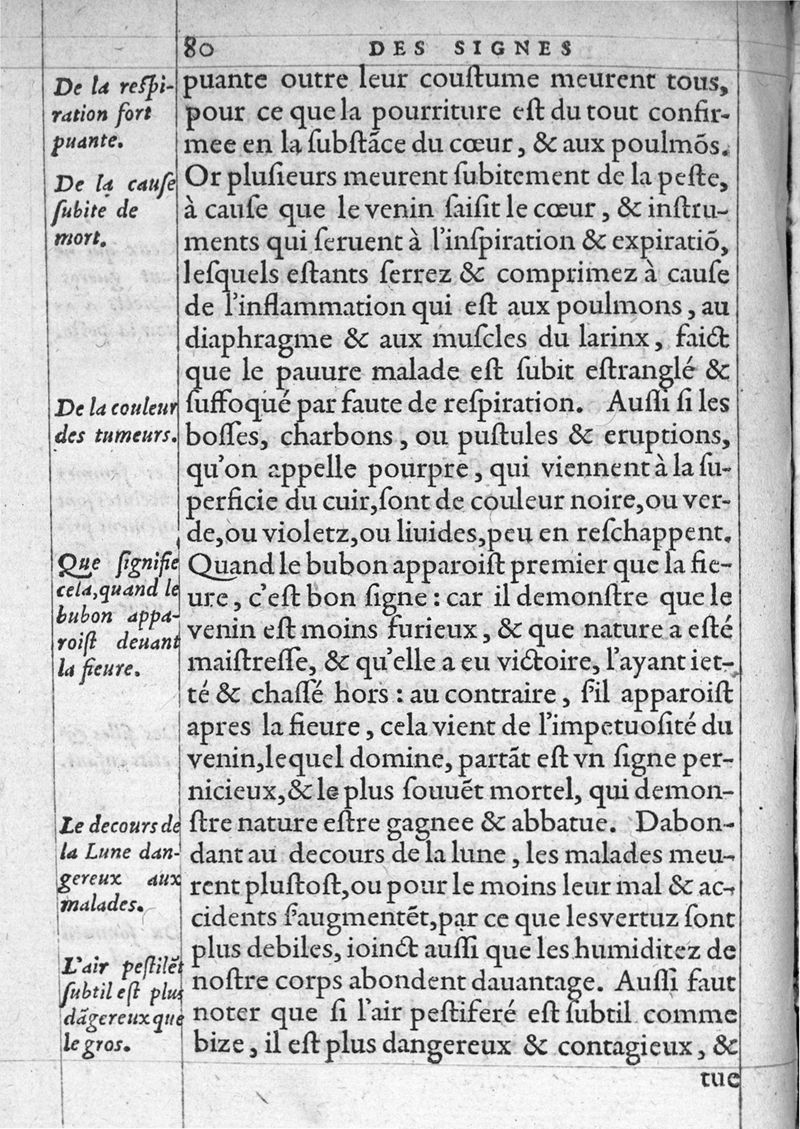 80 DES SIGNES
De la reſpi-
ration fort
puante.
De la cauſe
ſubite de
mort.
De la couleur
des tumeurs.
Que ſignifie
cela,quand le
bubon appa-
roiſt deuant
la fieure.
Le decours de
la Lune dan-
gereux aux
malades.
L'air peſtilẽt
ſubtil eſt plus
dãgereux que
le gros.
puante outre leur couſtume meurent tous,
pour ce que la pourriture eſt du tout confir-
mee en la ſubſtãce du cœur, & aux poulmõs.
Or pluſieurs meurent ſubitement de la peſte,
à cauſe que le venin ſaiſit le cœur, & inſtru-
ments qui ſeruent à l'inſpiration & expiratiõ,
leſquels eſtants ſerrez & comprimez à cauſe
de l'inflammation qui eſt aux poulmons, au
diaphragme & aux muſcles du larinx, faict
que le pauure malade eſt ſubit eſtranglé &
ſuffoqué par faute de reſpiration. Auſſi ſi les
boſſes, charbons, ou puſtules & eruptions,
qu'on appelle pourpre, qui viennent à la ſu-
perficie du cuir,ſont de couleur noire,ou ver-
de,ou violetz,ou liuides,peu en reſchappent.
Quand le bubon apparoiſt premier que la fie-
ure, c'eſt bon ſigne : car il demonſtre que le
venin eſt moins furieux, & que nature a eſté
maiſtreſſe, & qu'elle a eu victoire, l'ayant iet-
té & chaſſé hors : au contraire, ſ'il apparoiſt
apres la fieure, cela vient de l'impetuoſité du
venin,lequel domine, partãt eſt vn ſigne per-
nicieux,& le plus ſouuẽt mortel, qui demon-
ſtre nature eſtre gagnee & abbatue. Dabon-
dant au decours de la lune, les malades meu-
rent pluſtoſt,ou pour le moins leur mal & ac-
cidents ſ'augmentẽt,par ce que les vertuz ſont
plus debiles, ioinct auſſi que les humiditez de
noſtre corps abondent dauantage. Auſſi faut
noter que ſi l'air peſtiferé eſt ſubtil comme
bize, il eſt plus dangereux & contagieux, &
tue